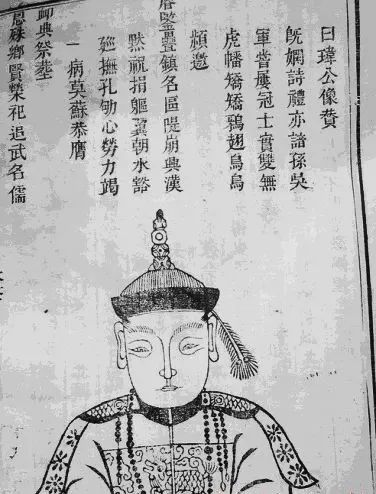 曰瑋公像贊
既嫻詩禮亦諳孫吳
軍當屢冠士實雙無
虎幡矯矯鶚翅烏烏
頻邀
鑒疊鎮名區隄崩興漢
黙祝捐軀冀朝水豁
廵撫孔劬心勞力竭
一病莫蘇恭膺
卹典祭塟
恩殊鄉賢榮祀追武名儒